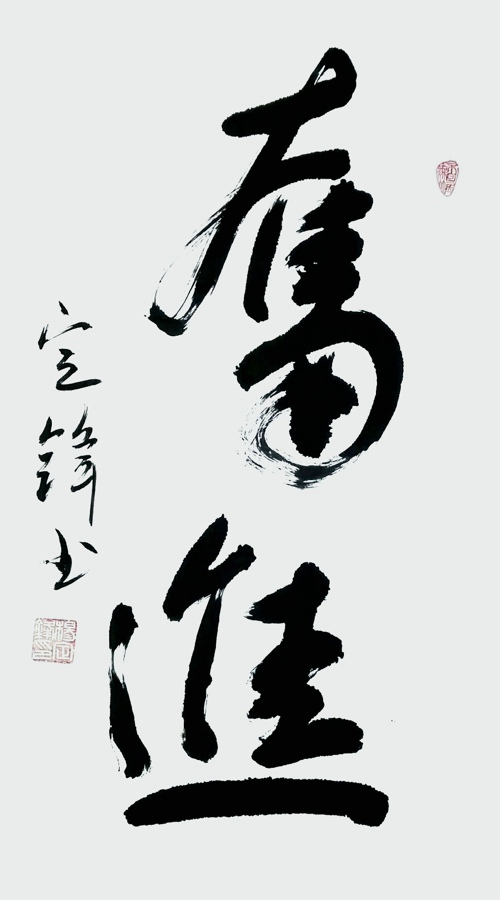 奮進
定鋒书